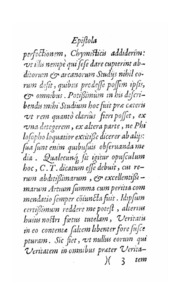 Epistola
perfectionem, Chymisticis addiderim:
ut illis nempè qui sese dare cuperent ab-
ditorum & arcanorum Studijs nihil eo-
rum desit, quibus prodesse possem ipsis,
& omnibus. Potissimum in his descri-
bendis mihi Studium hoc fuit præ cæteris
ut rem quantò clariùs fieri posset, ex
una detegerem, ex altera parte, ne Phi
losopho loquentis excidisse dicerer abditis:
sua sunt enim quibusvis observanda me
dia. Qualecunque sit igitur opusculum
hoc, C.T. dicatum esse debuit, cui re-
rum abditissimarum, & excellentissi-
marum Artium summa cum peritia com
mendatio semper coniuncta fuit. Ipsum
certissimum reddere me potest, alterius
huius nostri fœtus tutelam, Veritatis
in eo contenta falcem libenter fore susce
pturam. Sic fiet, ut nullus eorum qui
Veritatem in omnibus præter Verita-
)( 3 tem